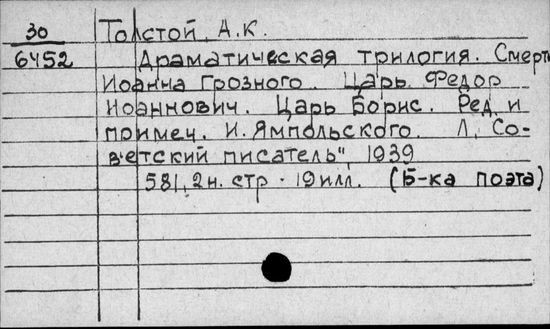 30 Толстой, А.К.
6452 Драматическая трилогия. Смерть
Иоанна Грозного. Царь Федор
Иоаннович. Царь Борис. Ред. и
примеч. И. Ямпольского. Л, Со-
ветский писатель", 1939
581, 2н. стр. 19 илл. (Б-ка поэта)